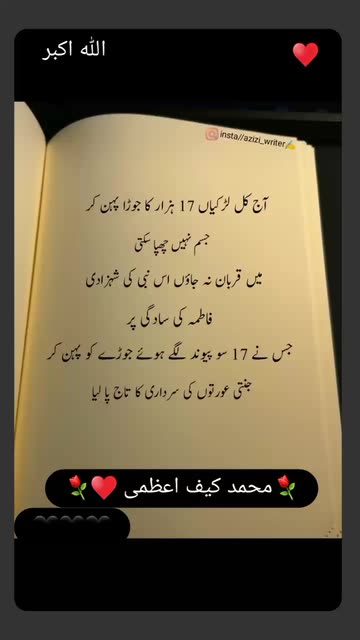 الله اکبر
insta//azizi_writer
آج کل لڑکیاں 17 ہزار کا جوڑا پہن کر
جسم نہیں چھپا سکتی
میں قربان نہ جاؤں اس نبی کی شہزادی
فاطمہ کی سادگی پر
جس نے 17 سو پیوند لگے ہوئے جوڑے کو پہن کر
جنتی عورتوں کی سرداری کا تاج پا لیا
محمد کیف اعظمی